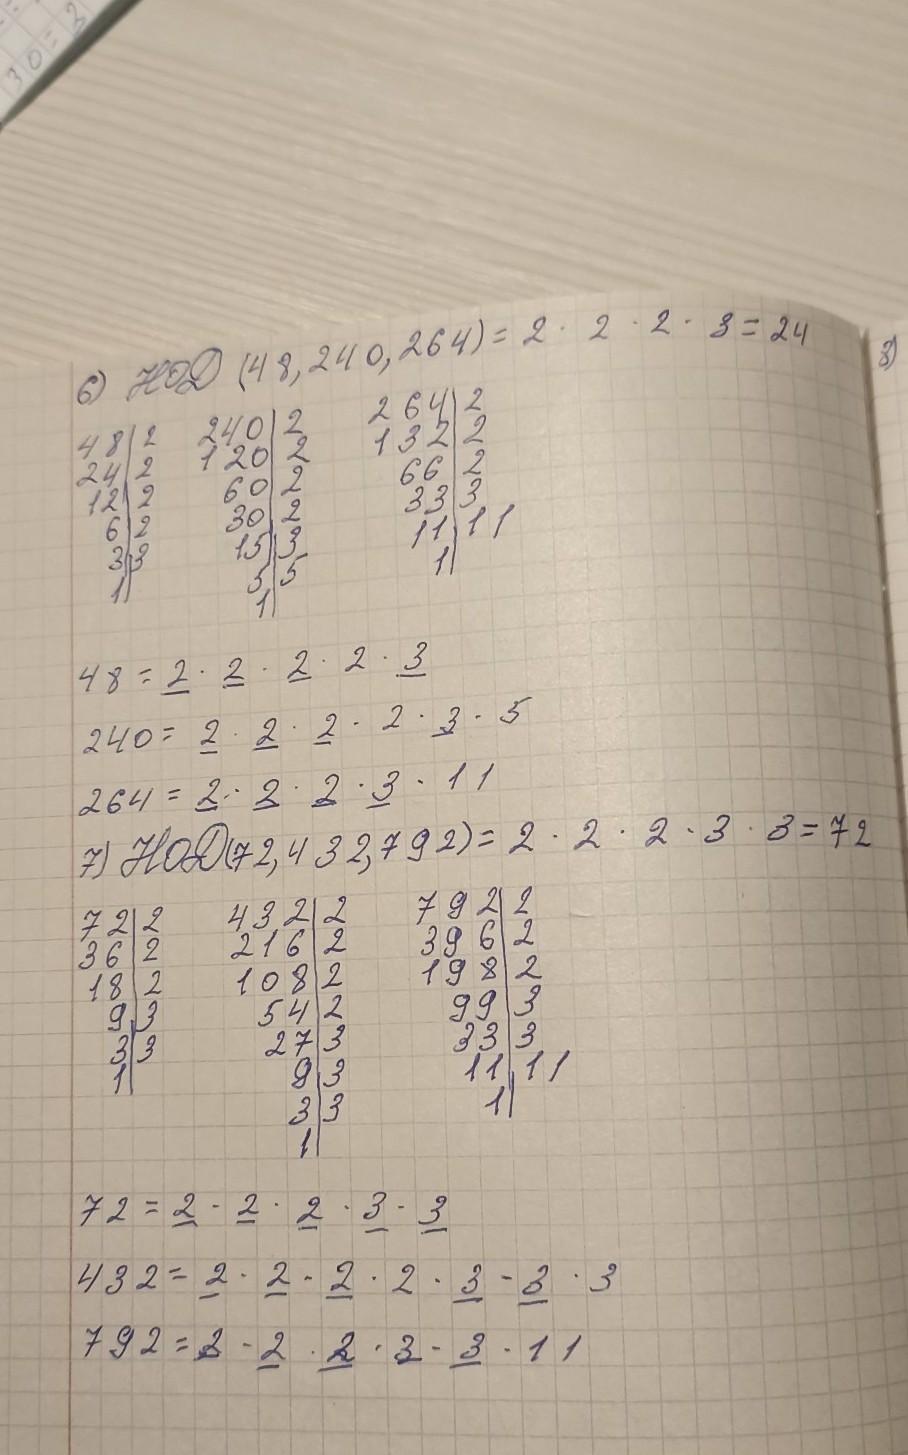 30=3
6) НОД (48,240,264)= 2 · 2 · 2 · 3 = 24
8)
48|2 240|2 264|2
24|2 120|2 132|2
12|2 60|2 66|2
6|2 30|2 33|3
3|3 15|3 11|11
1| 5|5 1|
1|
48 = 2 · 2 · 2 · 2 · 3
240= 2 · 2 · 2 · 2 · 3 · 5
264 = 2 · 2 · 2 · 3 · 11
7) НОД(72,432,792)= 2 · 2 · 2 · 3 · 3 = 72
72|2 432|2 792|2
36|2 216|2 396|2
18|2 108|2 198|2
9|3 54|2 99|3
3|3 27|3 33|3
1| 9|3 11|11
3|3 1|
1|
72 = 2 · 2 · 2 · 3 · 3
432= 2 · 2 · 2 · 2 · 3 · 3 · 3
792 = 2 · 2 · 2 · 3 · 3 · 11